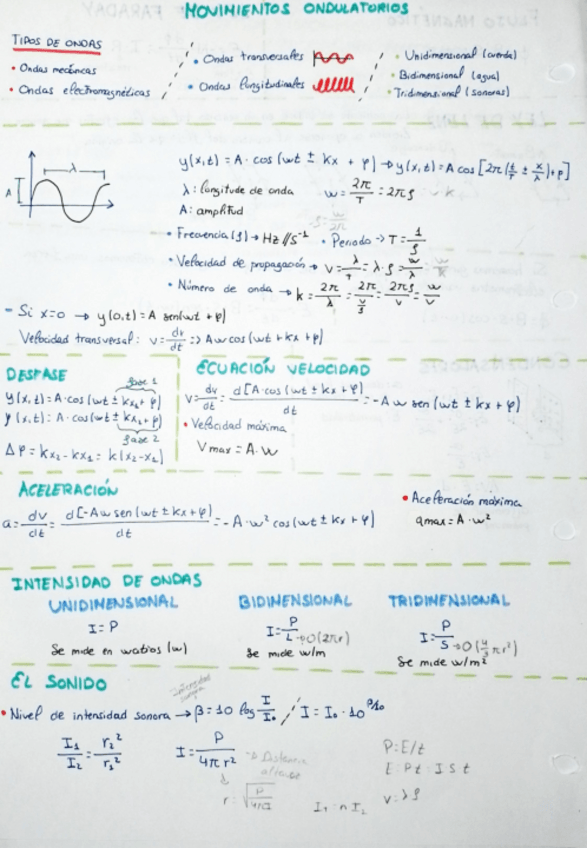 MOVIMIENTOS ONDULATORIOS
TIPOS DE ONDAS
• Ondas mecánicas
• Ondas electromagnéticas
• Ondas transversales
• Ondas longitudinales
• Unidimensional (cuerda)
• Bidimensional (agua)
• Tridimensional (sonoras)
A
λ
y(x,t) = A · cos (ωt ± kx + φ) → y(x,t) = A cos [2π(t/T ± x/λ)+φ]
λ: longitud de onda ω = 2π/T = 2πf
A: amplitud
• Frecuencia (f) → Hz // s⁻¹ • Periodo → T = 1/f
• Velocidad de propagación → v = λ/T = λ·f = ω/k
• Número de onda → k = 2π/λ = 2π/(v/f) = 2πf/v = ω/v
- Si x=0 → y(0,t) = A sen(ωt + φ)
Velocidad transversal: v = dy/dt => Aω cos (ωt + kx + φ)
DESFASE
fase 1
y(x,t) = A · cos (ωt ± kx₁ + φ)
y(x,t) = A · cos (ωt ± kx₂ + φ)
fase 2
Δφ = kx₂ - kx₁ = k(x₂-x₁)
ECUACIÓN VELOCIDAD
v = dy/dt = d[A·cos (ωt ± kx + φ)]/dt = -A ω sen (ωt ± kx + φ)
• Velocidad máxima
Vmax = A·ω
ACELERACIÓN
a = dv/dt = d[-Aω sen (ωt ± kx + φ)]/dt = -A·ω² cos (ωt ± kx + φ)
• Aceleración máxima
amax = A·ω²
INTENSIDAD DE ONDAS
UNIDIMENSIONAL
I = P
Se mide en watios (w)
BIDIMENSIONAL
I = P/L → O (2πr)
Se mide w/m
TRIDIMENSIONAL
I = P/S → O (4/3 πr²)
Se mide w/m²
EL SONIDO
intensidad sonora
• Nivel de intensidad sonora → β = 10 log I/I₀ / I = I₀ · 10^β/10
I₁/I₂ = r₂²/r₁²
I = P/4πr² → Distancia
r = √P/4πI
I₁ = n I₂
P = E/t
E = P t = I S t
v = λf